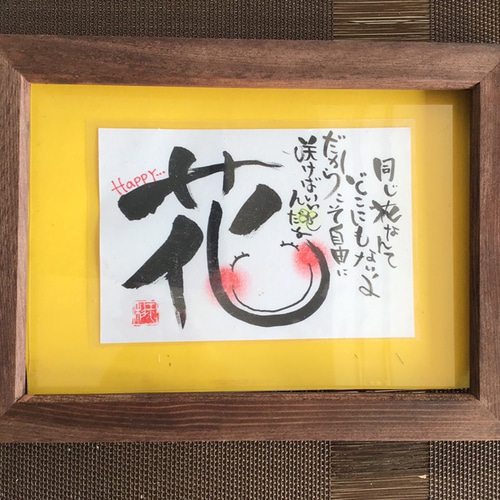 同じ花なんて
どこにもないよ
だからこそ自由に
咲けばいい
んだよ
Happy...
花